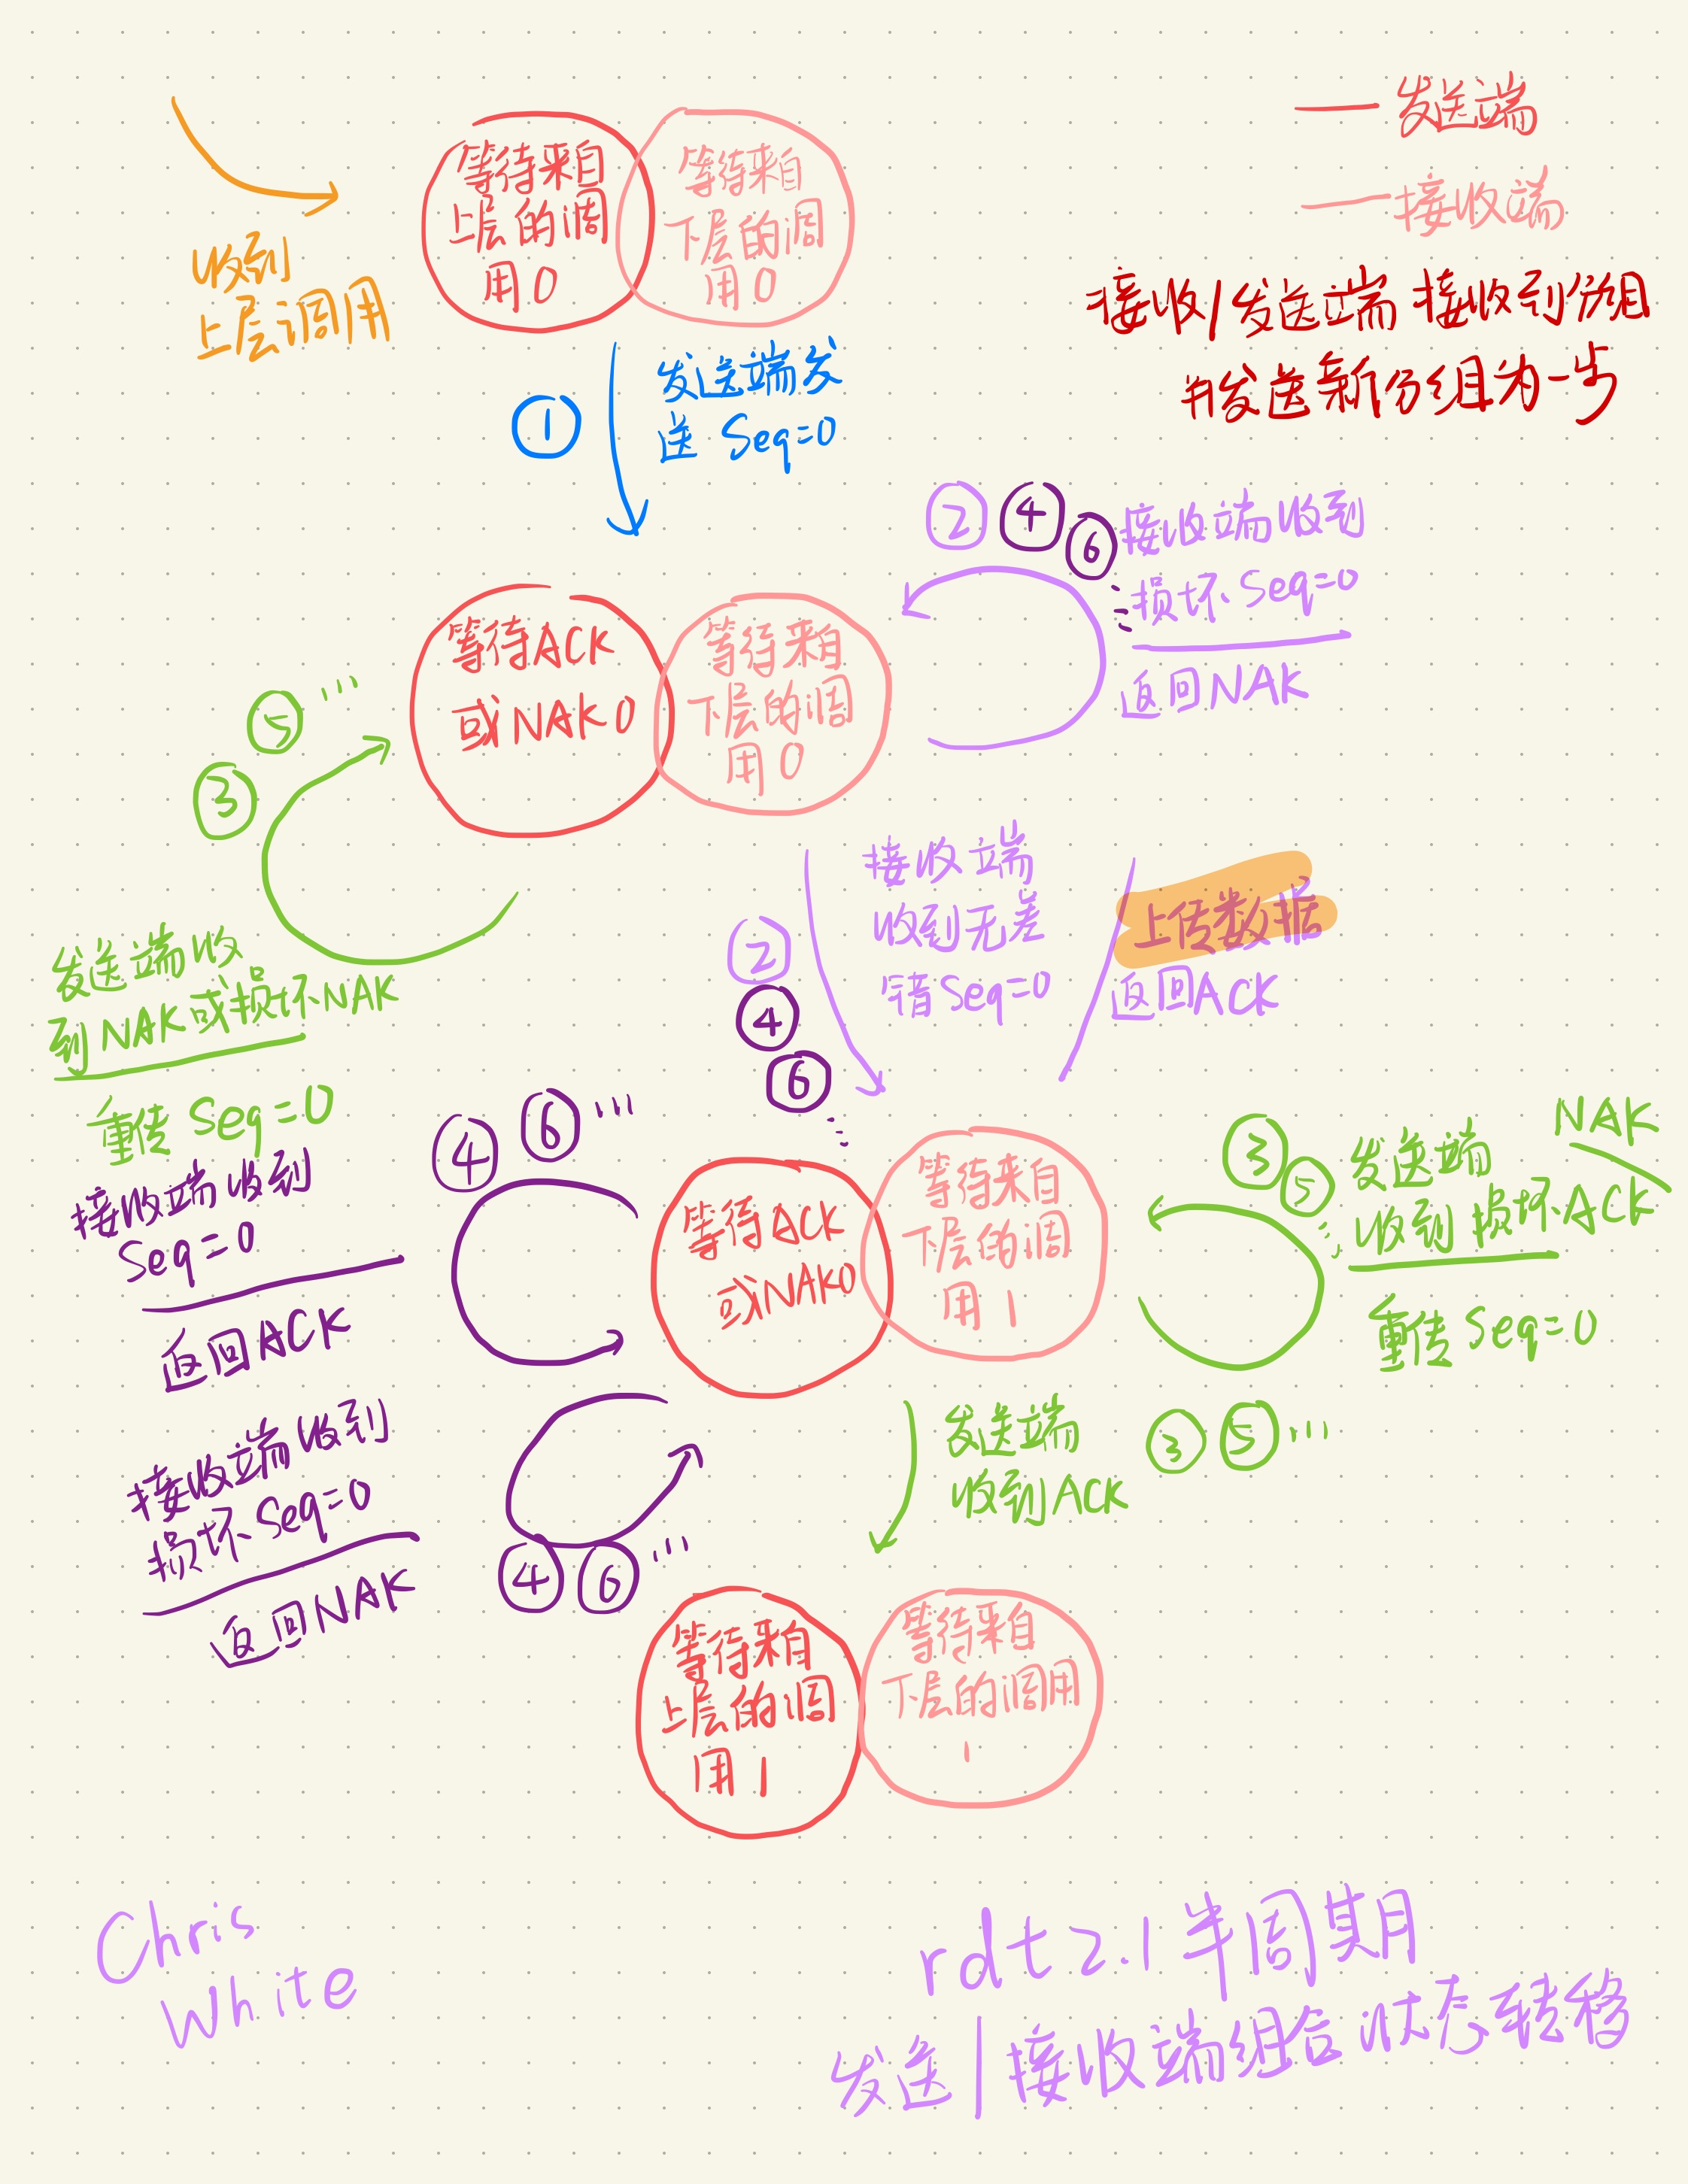 收到
上层调用
等待来自
上层的调
用0
等待来自
下层的调
用0
发送端
接收端
接收/发送端 接收到分组
并发送新分组为一步
①
发送端发
送 Seq=0
② ④ ⑥
接收端收到
损坏 Seq=0
返回NAK
等待ACK
或NAK0
等待来自
下层的调
用0
③ ⑤ ...
发送端收
到NAK或损坏NAK
重传 Seq=0
② ④ ⑥ ...
接收端
收到无差
错Seq=0
上传数据
返回ACK
④ ⑥ ...
接收端收到
Seq=0
返回ACK
等待ACK
或NAK0
等待来自
下层的调
用1
③ ⑤ ...
发送端 NAK
收到损坏ACK
重传 Seq=0
接收端收到
损坏 Seq=0
返回NAK
④ ⑥ ...
发送端
收到ACK
③ ⑤ ...
等待来自
上层的调
用1
等待来自
下层的调用
1
Chris
White
rdt2.1半周期
发送/接收端组合状态转移